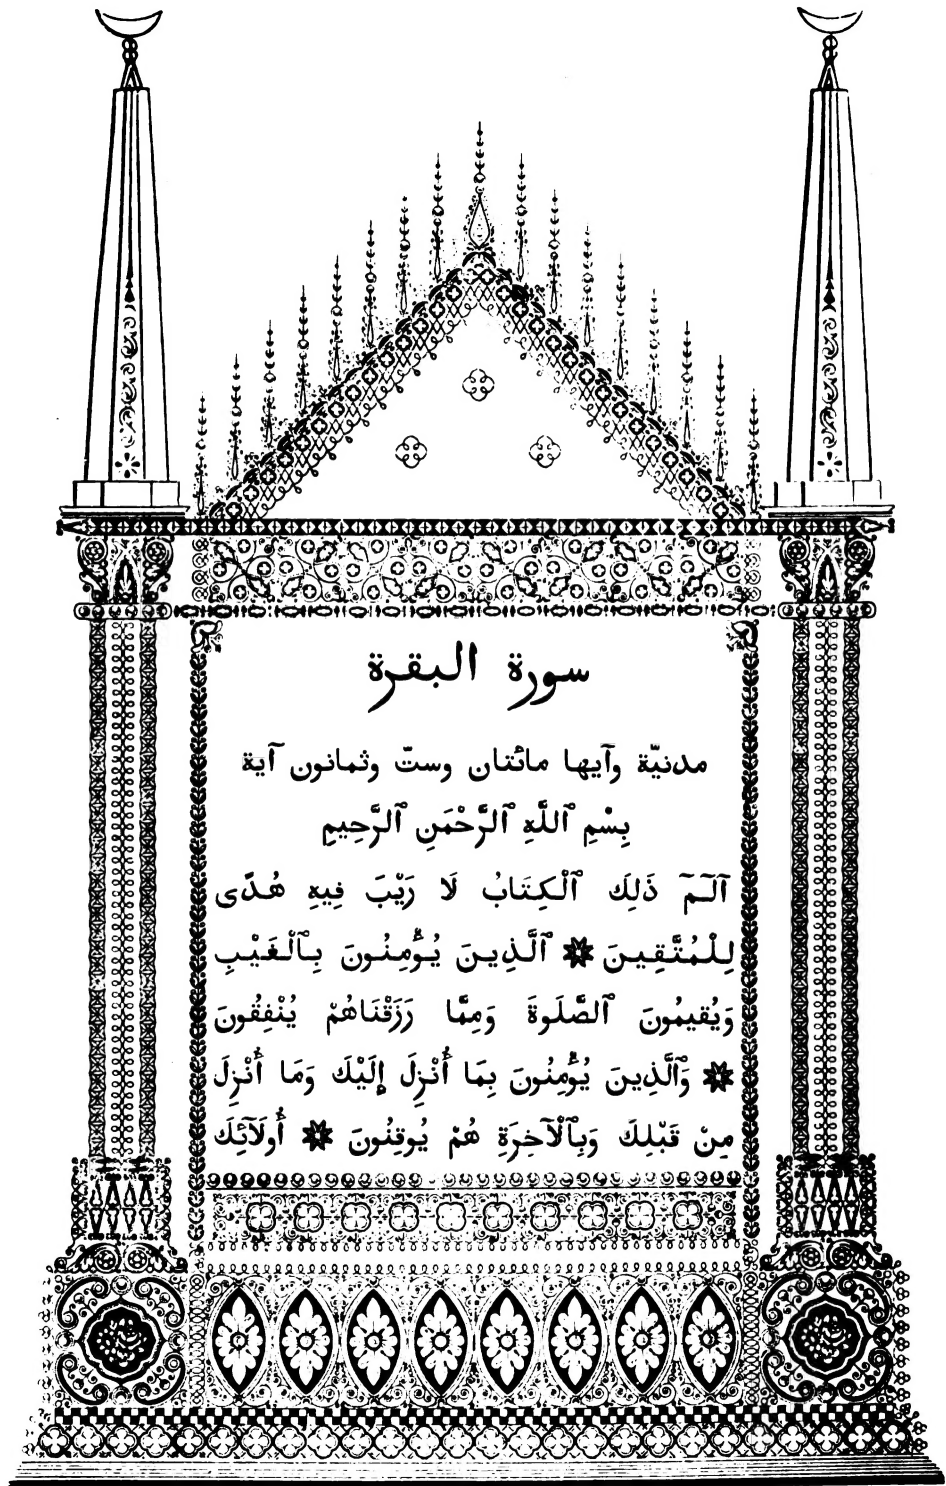 سورة البقرة
مدنيّة وآيها مائتان وستّ وثمانون آية
بِسْمِ ٱللَّهِ ٱلرَّحْمَنِ ٱلرَّحِيمِ
آلٓمٓ ذَلِكَ ٱلْكِتَابُ لَا رَيْبَ فِيهِ هُدًى
لِلْمُتَّقِينَ ✸ ٱلَّذِينَ يُؤْمِنُونَ بِٱلْغَيْبِ
وَيُقِيمُونَ ٱلصَّلَوةَ وَمِمَّا رَزَقْنَاهُمْ يُنْفِقُونَ
✸ وَٱلَّذِينَ يُؤْمِنُونَ بِمَا أُنْزِلَ إِلَيْكَ وَمَا أُنْزِلَ
مِنْ قَبْلِكَ وَبِٱلْآخِرَةِ هُمْ يُوقِنُونَ ✸ أُولَآئِكَ